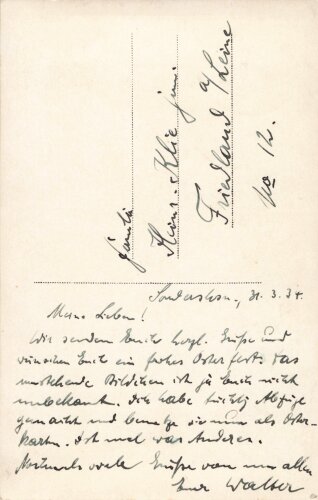 Familie
Heinr. Klie jun.
Friedland a/Leine
No 12.
31. 3. 34
Meine Lieben!
Wir senden Euch hezl. Grüße und
wünschen Euch ein frohes Osterfest. Das
umstehende Bildchen ist ja Euch nicht
unbekannt. Ich habe tüchtig Abzüge
gemacht und benutze sie nun als Oster-
karten. Ist mal was Anderes.
Nochmals viele Grüße von uns allen
Euer Walter